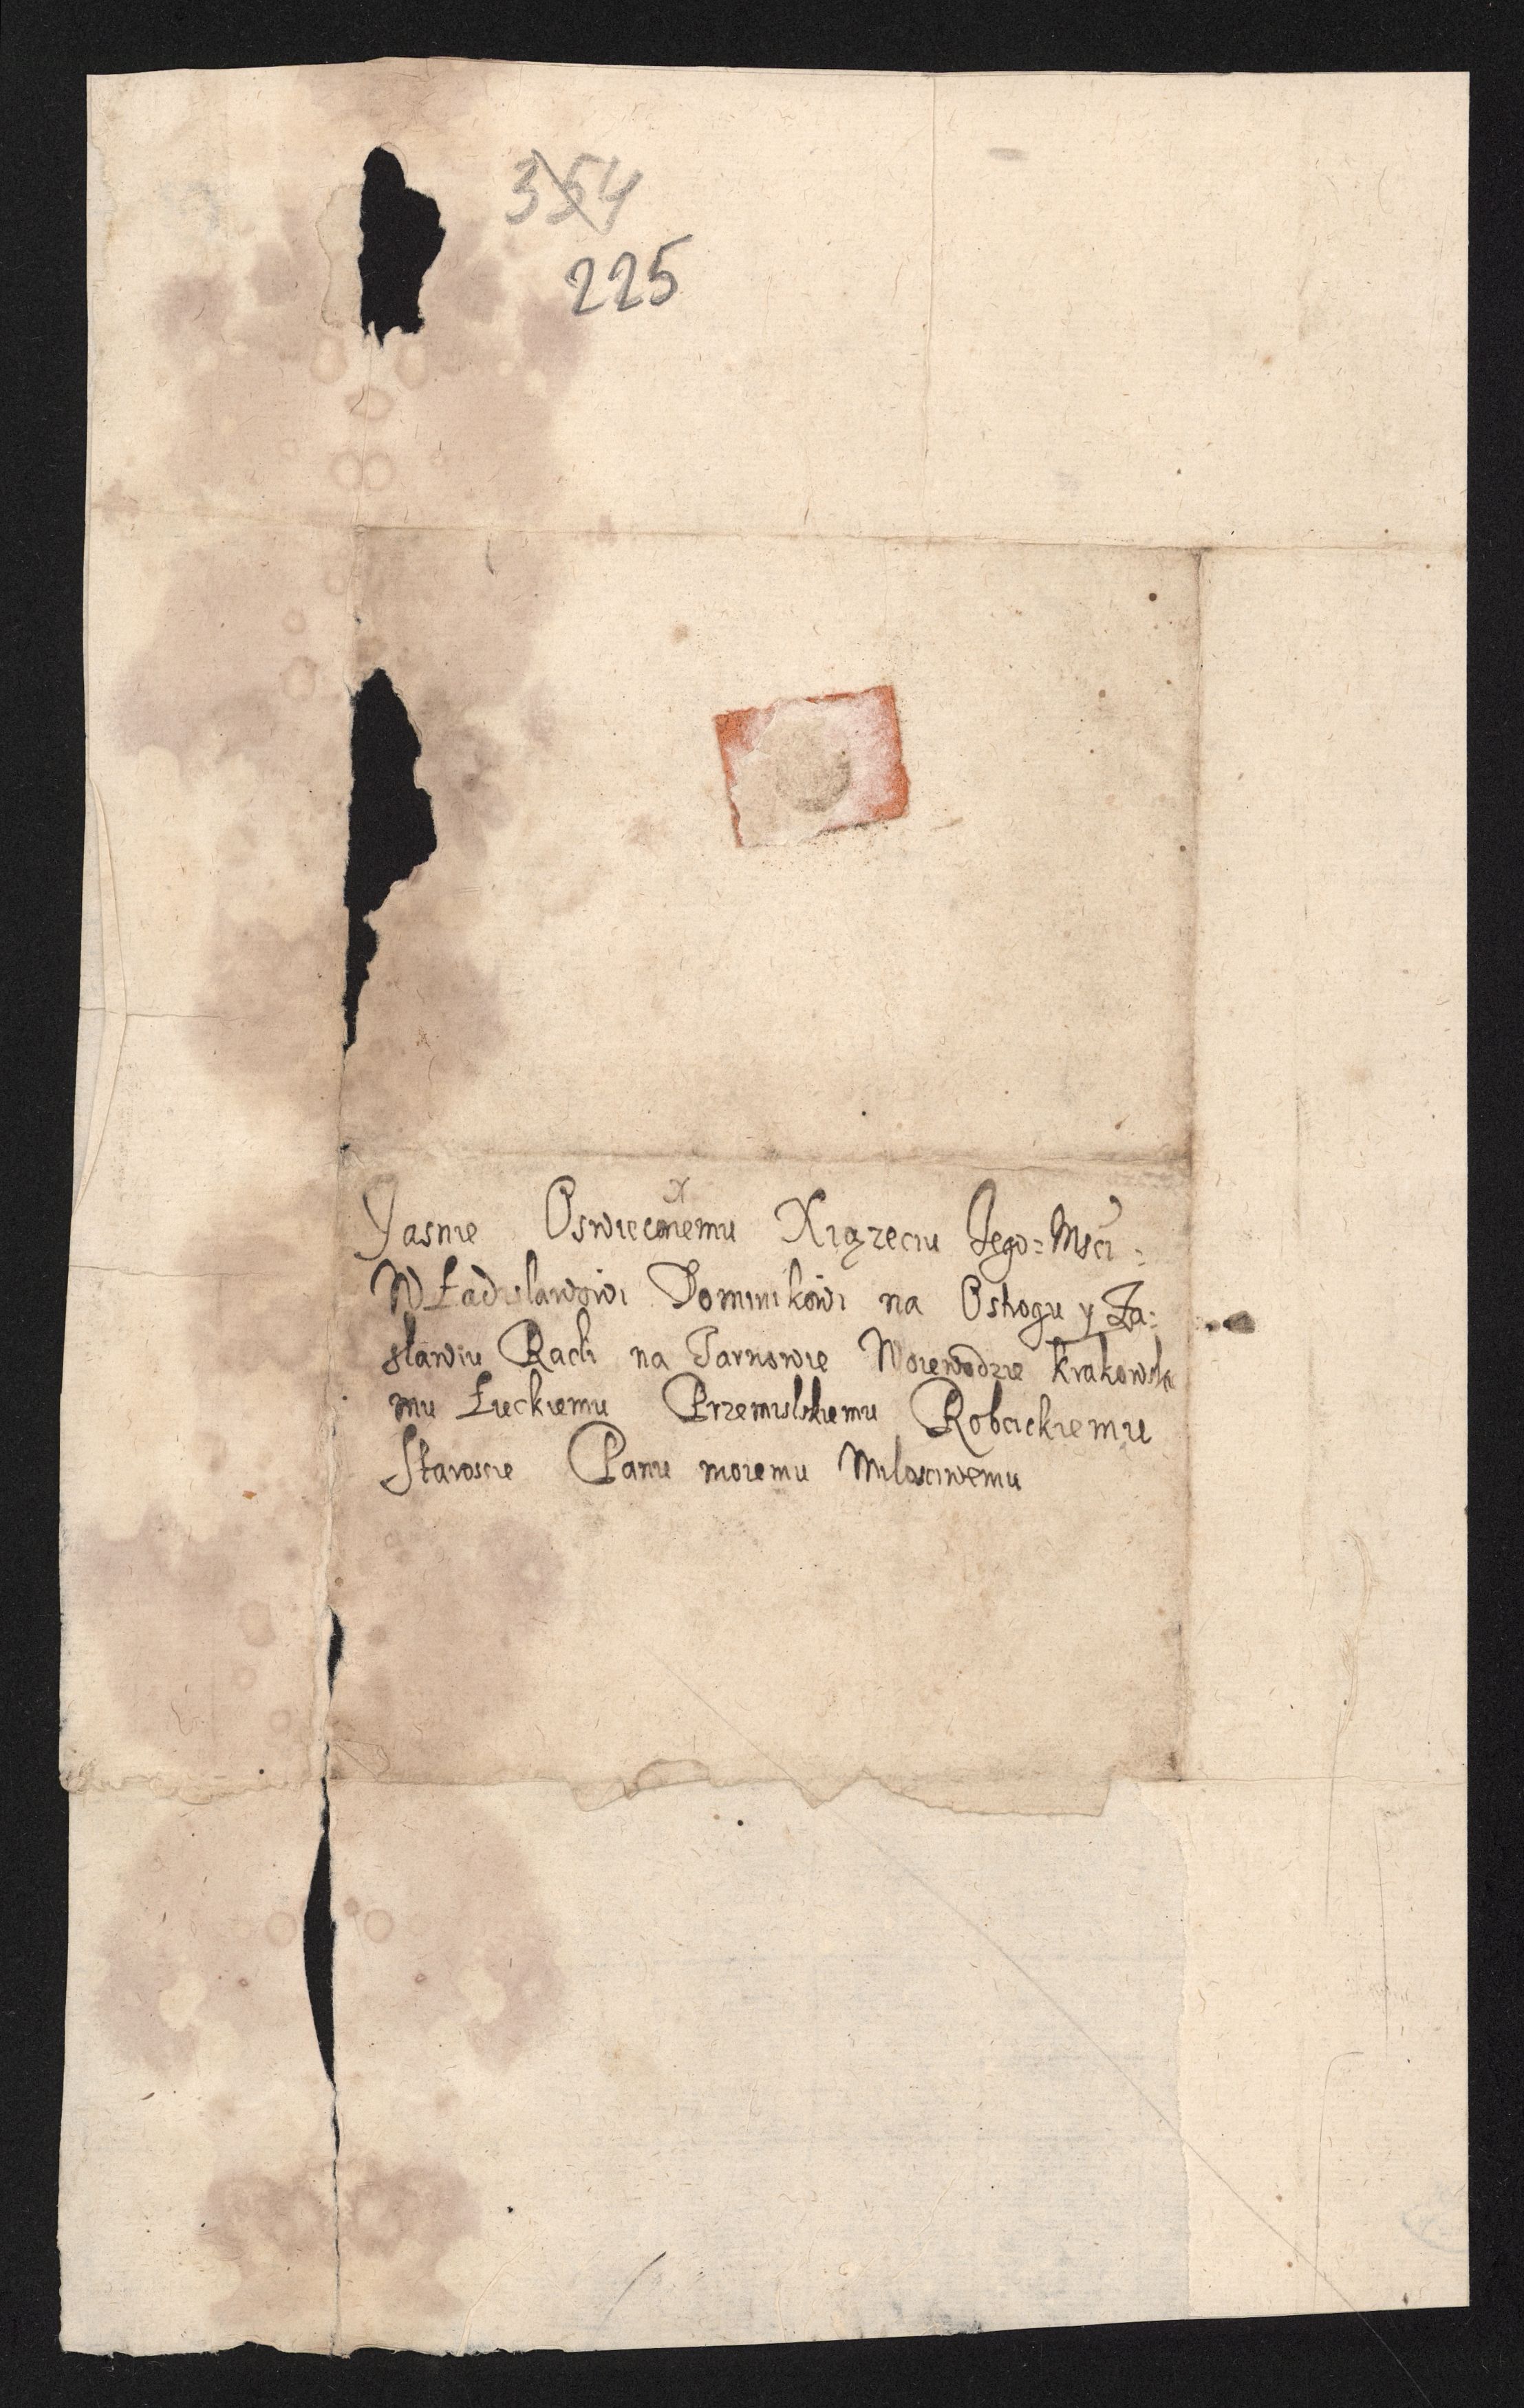 354
225
Yasnie Oswieconemu Xiązeciu Jego=Msci:
Władislawowi Dominikowi na Ostrogu y Za:
slawiu Rach na Tarnowie Woiewodzie Krakowskie
mu Łuckiemu Przemulskiemu
Staroscie Panu moiemu Milosciwemu